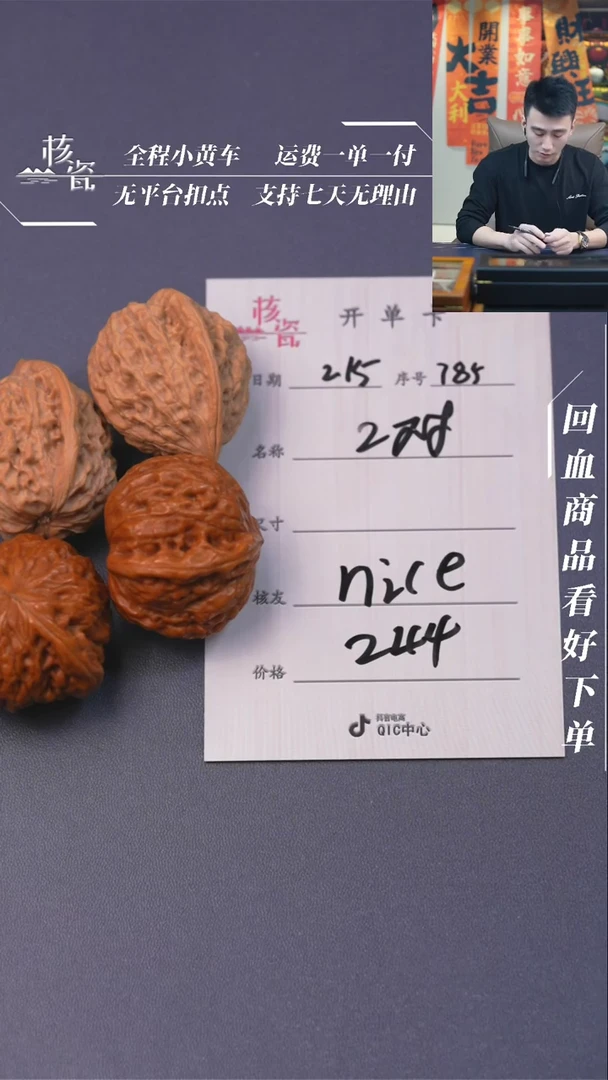 核瓷
全程小黄车 运费一单一付
无平台扣点 支持七天无理由
開業
大吉
大利
事事如意
財興旺
核瓷 开单卡
日期 215 序号 785
名称 2对
尺寸
核友 nice
价格 244
抖音电商
QIC中心
回血商品看好下单